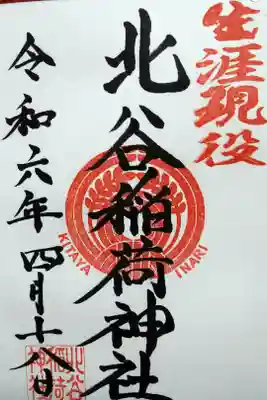 生涯現役
北谷稲荷神社
KITAYA INARI
令和六年四月十八日
北谷
稲荷
神社